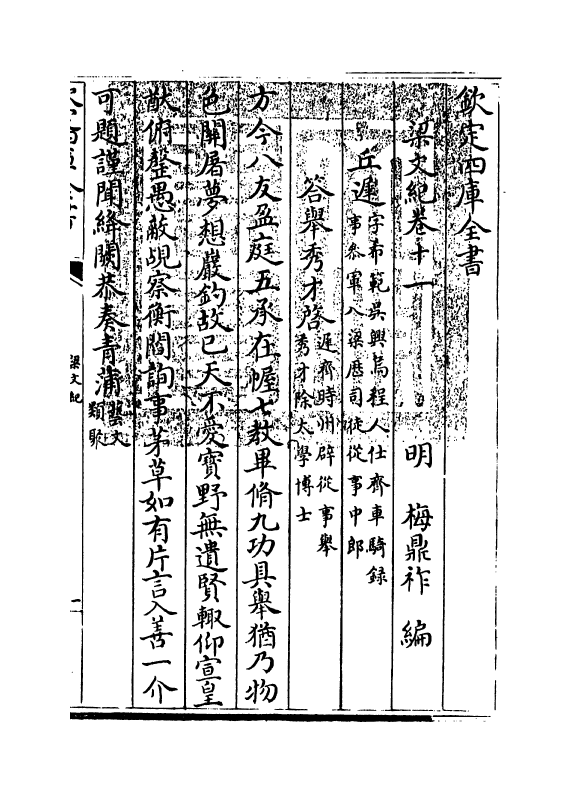 欽定四庫全書
梁文紀卷十一　明　梅鼎祚　編
丘遲
字希範吳興烏程人仕齊車騎録
事叅軍入梁歴司徒從事中郎
答舉秀才啓
遲齊時州辟從事舉
秀才除太學博士
方今八友盈庭五承在幄七教畢脩九功具舉猶乃物
色關屠夢想巖釣故已天不愛寶野無遺賢輙仰宣皇
猷俯罄愚蔽覘察衡閭詢事茅草如有片言入善一介
可題謹聞絳闕恭奏青蒲
藝文
類聚
梁文紀
一